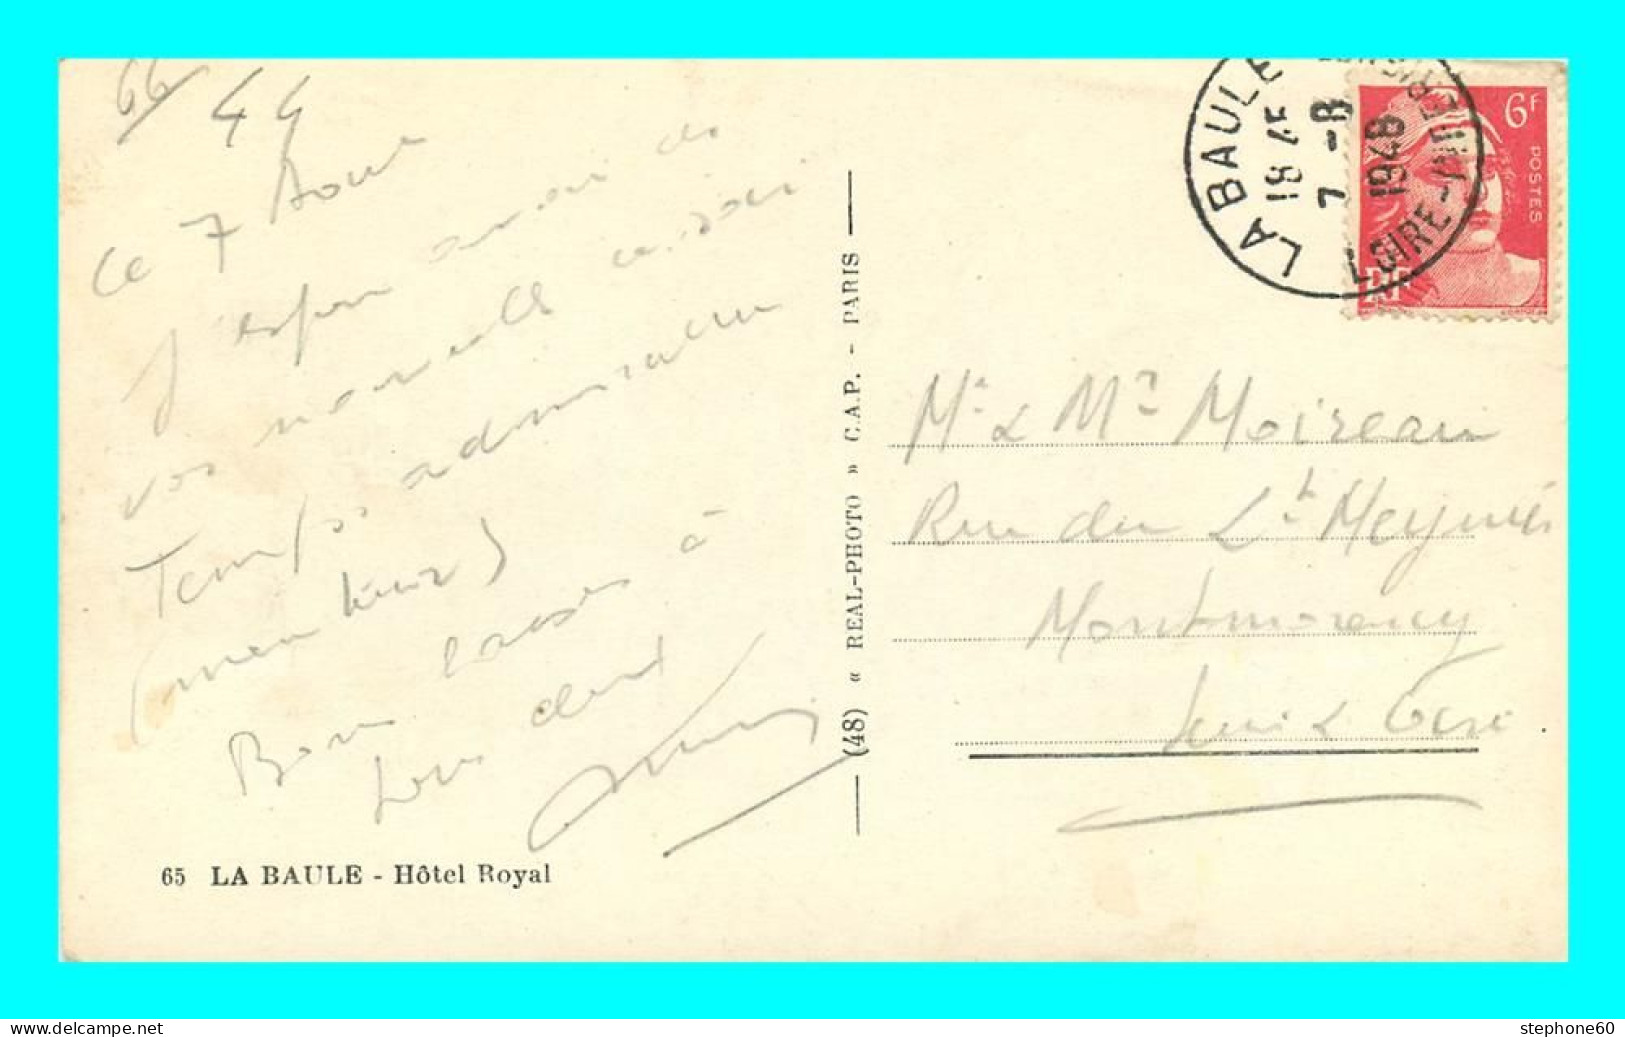 66
44
ce 7 Aout
J'espère avoir de
vos nouvelles ce soir
Temps admirable
(mer
Bons baisers à
tous deux
65 LA BAULE - Hôtel Royal
(48) « REAL-PHOTO » C.A.P. - PARIS
LA BAULE
18 45
7 -8
1948
LOIRE-INFERIEURE
6F
POSTES
RF
Mr & Mme Moireau
Rue du
Montmorency
Seine & Oise
delcampe.net
stephone60